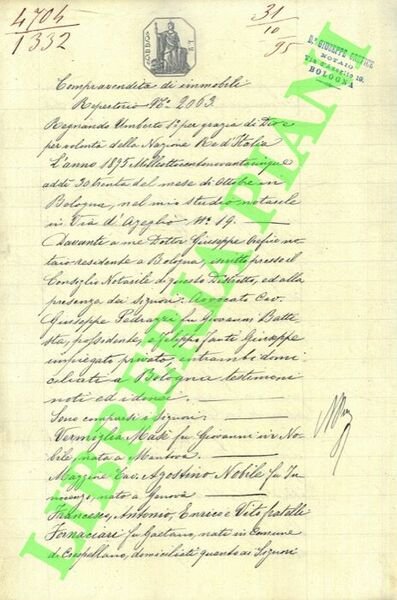 4704
1332
31
10
95
Dr GIUSEPPE
NOTAIO
Via d'Azeglio 19.
BOLOGNA
Compravendita di immobili
Repertorio No 2063
Regnando Umberto Io per grazia di Dio e
per volontà della Nazione Re d'Italia
L'anno 1895 Millottocentonovantacinque
addì 30 trenta del mese di Ottobre in
Bologna, nel mio studio notarile
in Via d'Azeglio No 19.
Davanti a me Dottor Giuseppe no
taio residente a Bologna, iscritto presso il
Consiglio Notarile di questo Distretto, ed alla
presenza dei Signori: Avvocato Cav.
Giuseppe Pedrazzi fu Giovanni Batti
sta, possidente, e Giuseppe
impiegato privato, entrambi domi
ciliati a Bologna testimoni
noti ed idonei.
Sono comparsi i Signori:
Vermiglia Masè fu Giovanni in No
bile, nata a Mantova
Mazzine Cav. Agostino Nobile fu In
nocenzo, nato a Genova
Francesco, Antonio, Enrico e Vito fratelli
Fornaciari fu Gaetano, nati in Comune
di Crespellano, domiciliati quanto ai Signori
LIBRERIA PIANI